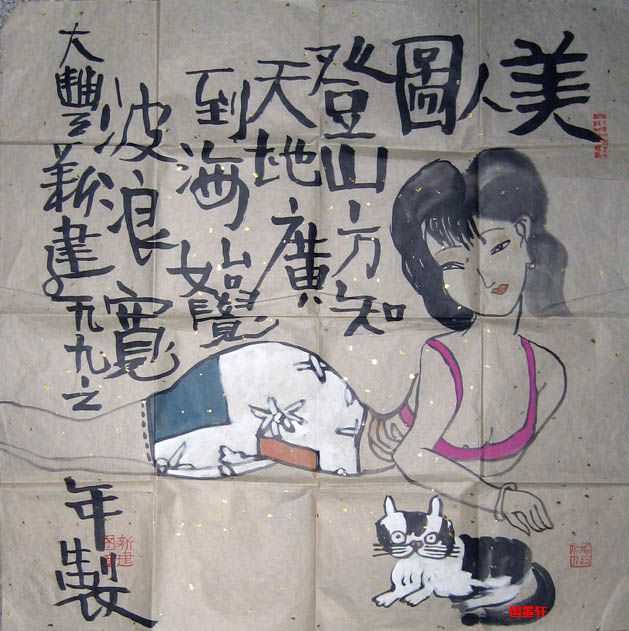 美人圖
登山方知
天地廣
到海始覺
波浪寬
大豐新建一九九之年製
新建
国墨轩